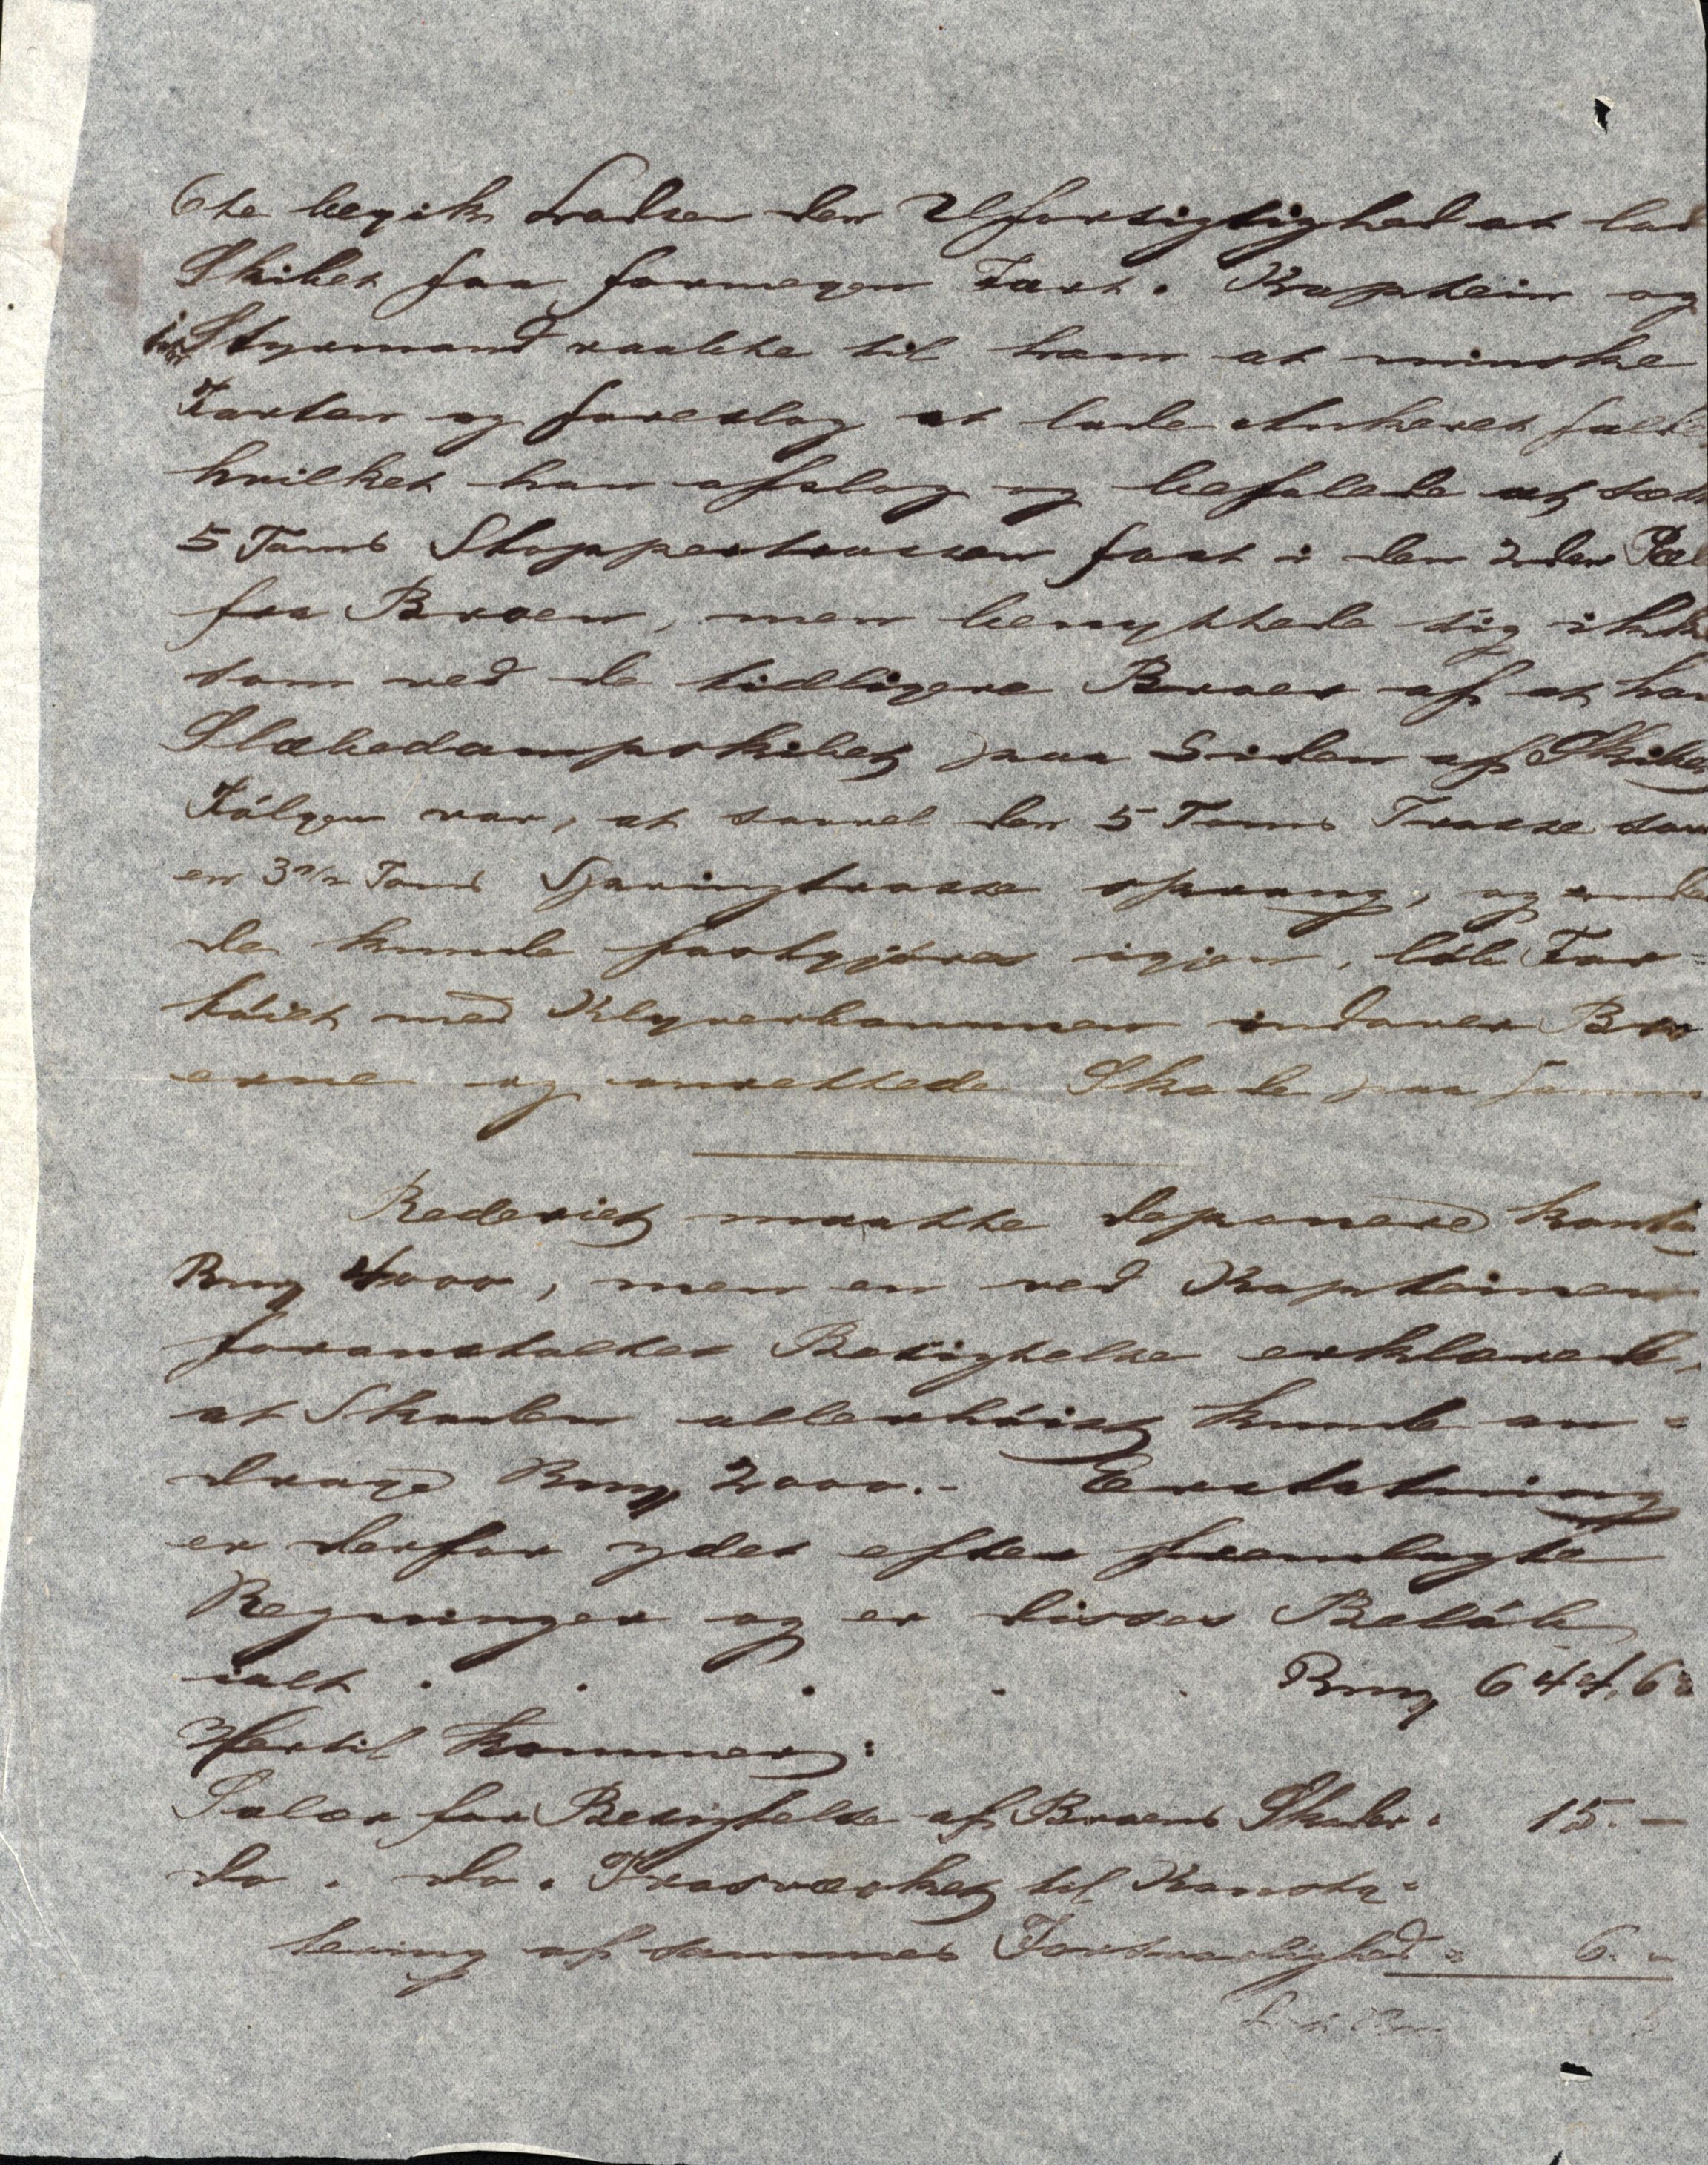 6te begik Lodsen den Uforsigtighed at lad
Skibet faa formegen Fart. Kaptein og
Styrmand raabte til ham at minske
Farten og foreslog at lade Ankeret falde
hvilket han afslog og befalede at sæt
5 Toms Stoppertrossen fast i den 2den Pæl
fra Broen, men benyttede sig ikke
som ved de tidligere Broer af at ha
Slæbedampskibet paa Siden af Skibet
Følgen var, at saavel den 5 Toms Trosse som
en 3½ Toms Springtrosse sprang, og inden
de kunde fastgjøres igjen, løb Far=
tøiet med Klyverbommen indover Bro
erne og anrettede Skade paa samme
Rederiet maatte deponere kontant
Rmg 4000, men en ved Kapteinen
foranstaltet Besigtelse erklærede,
at Skaden allerhøist kunde an=
drage Rmg 2000.- Erstatning
er derfor ydet efter fremlagte
Regninger og er disses Beløb
ialt . . . . . Rmg 644.6
Hertil kommer:
Salær for Besigtelse af Broens Skader. 15.—
do. do. Trosværket til Konsta=
tering af sammes Forsvarlighed " 6.-